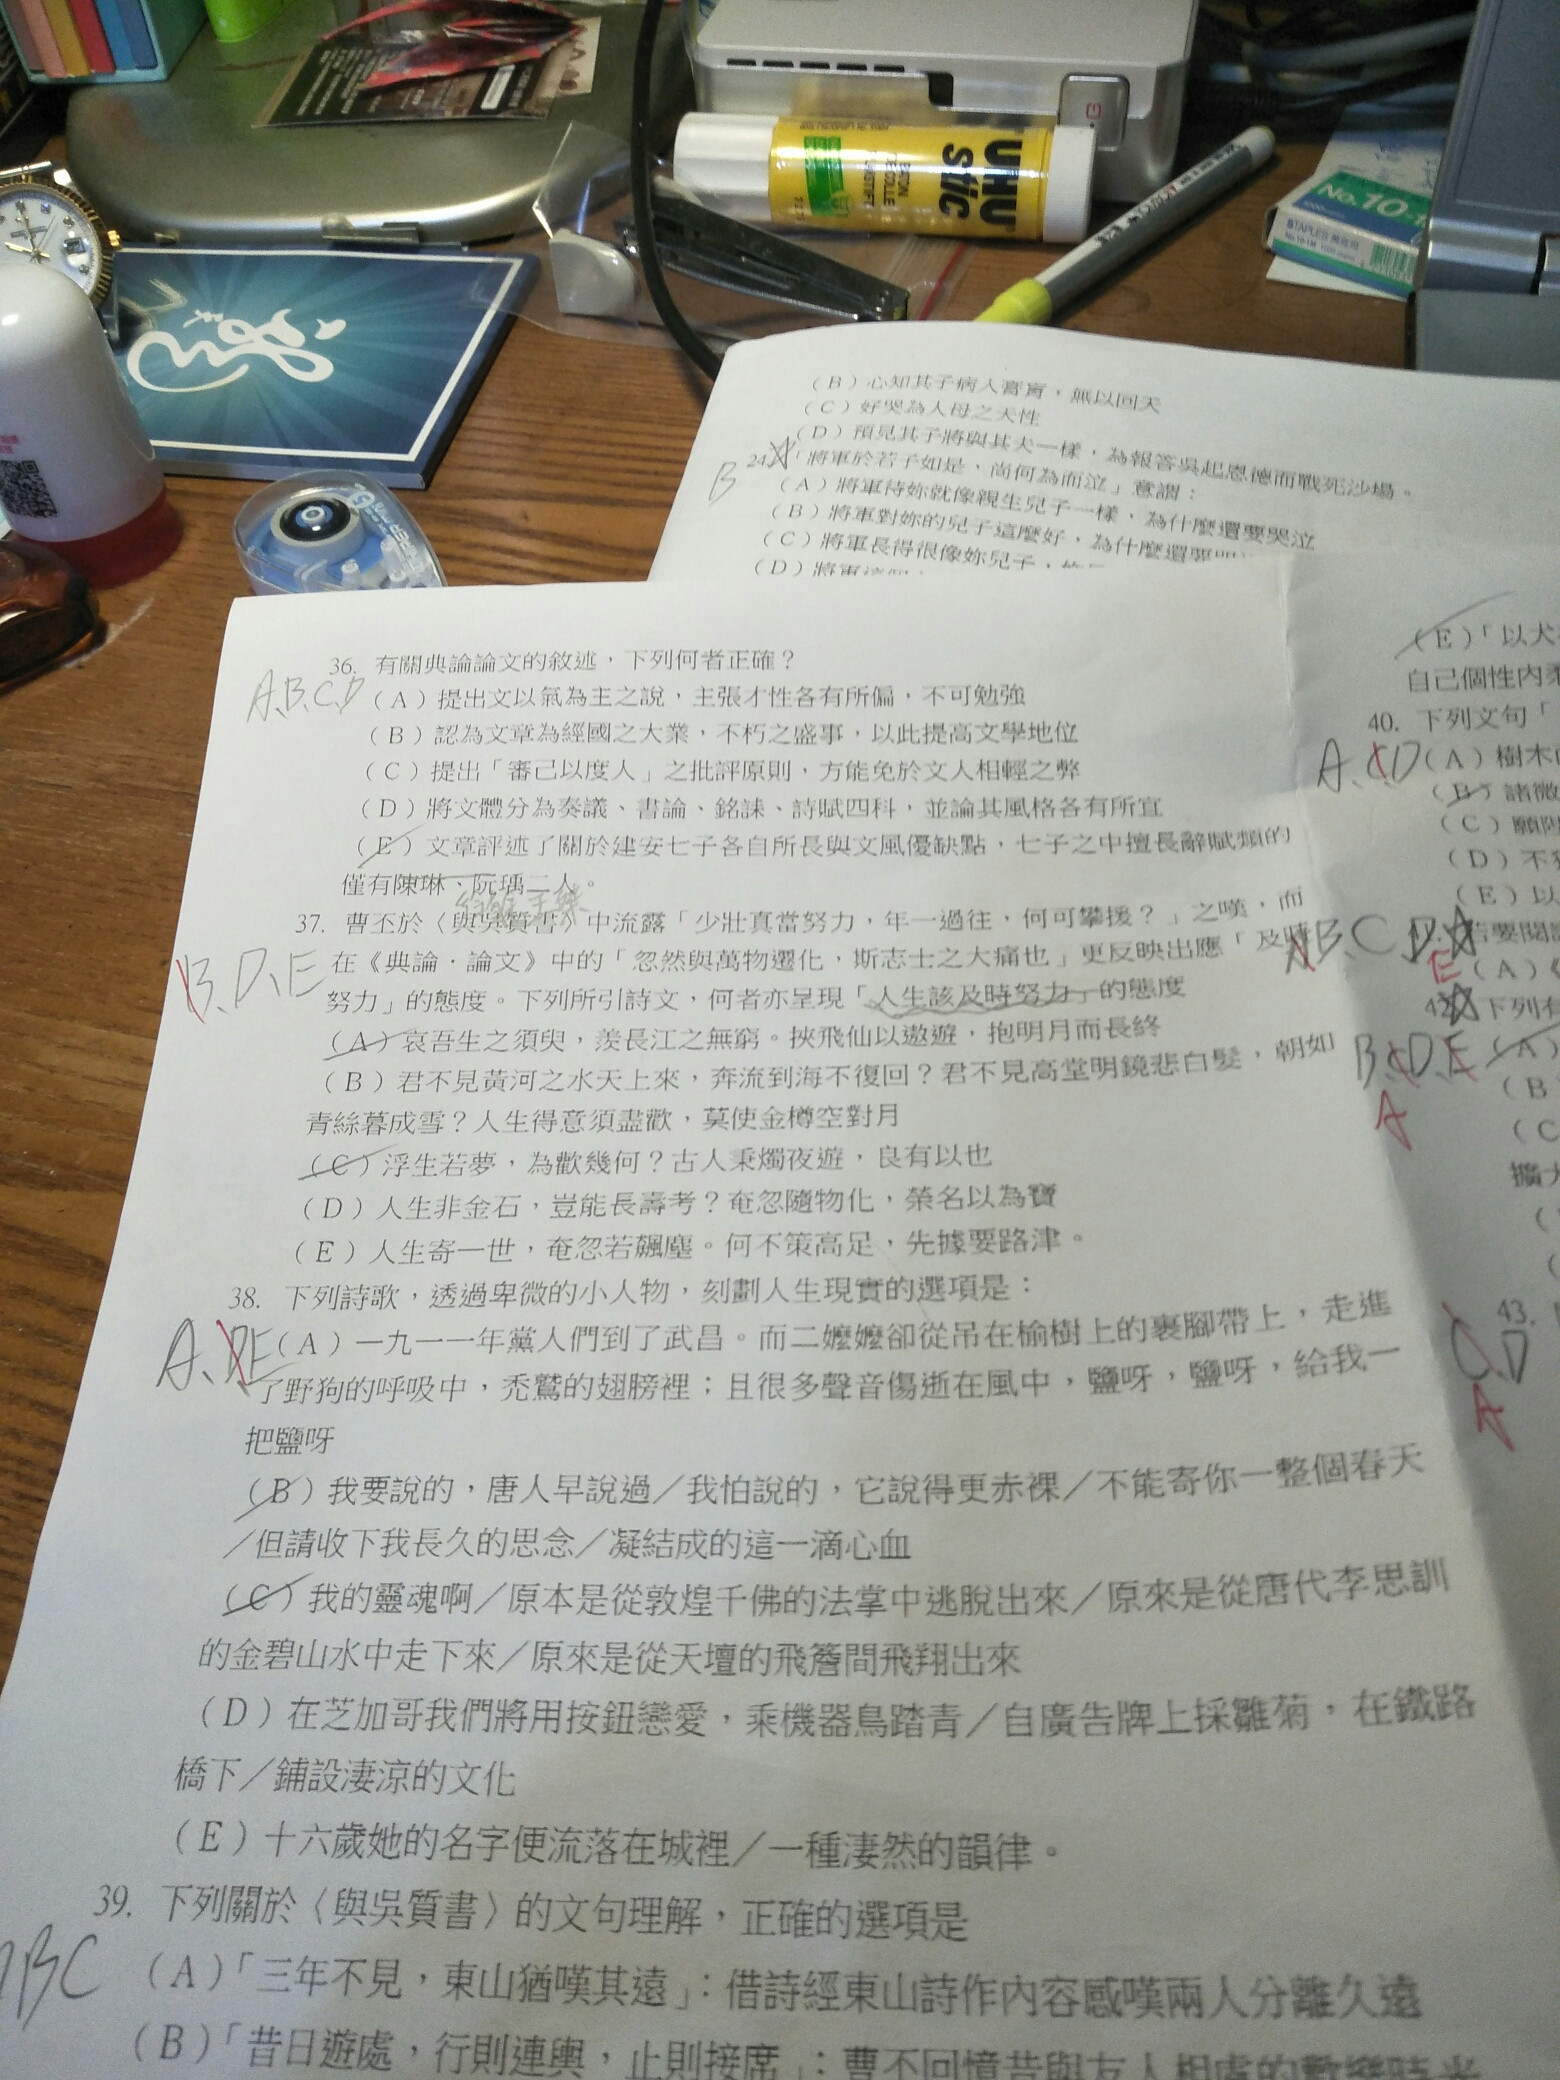 UHU
stic
No.10
STAPLES
(B)心知其子病入膏肓，無以回天
(C)好哭為人母之天性
(D)預見其子將與其犬一樣，為報答吳起恩德而戰死沙場。
B
24.「將軍於若子如是，尚何為而泣」意謂：
(A)將軍待妳就像親生兒子一樣，為什麼還要哭泣
(B)將軍對妳的兒子這麼好，為什麼還要
(C)將軍長得很像妳兒子，
(D)將軍這
36. 有關典論論文的敘述，下列何者正確？
A.B.C.D
(A)提出文以氣為主之說，主張才性各有所偏，不可勉強
(B)認為文章為經國之大業，不朽之盛事，以此提高文學地位
(C)提出「審己以度人」之批評原則，方能免於文人相輕之弊
(D)將文體分為奏議、書論、銘誄、詩賦四科，並論其風格各有所宜
(E)文章評述了關於建安七子各自所長與文風優缺點，七子之中擅長辭賦類的
僅有陳琳、阮瑀二人。
37. 曹丕於〈與吳質書〉中流露「少壯真當努力，年一過往，何可攀援？」之嘆，而
B.D.E
在《典論．論文》中的「忽然與萬物遷化，斯志士之大痛也」更反映出應「及時
努力」的態度。下列所引詩文，何者亦呈現「人生該及時努力」的態度
(A)哀吾生之須臾，羨長江之無窮。挾飛仙以遨遊，抱明月而長終
(B)君不見黃河之水天上來，奔流到海不復回？君不見高堂明鏡悲白髮，朝如
青絲暮成雪？人生得意須盡歡，莫使金樽空對月
(C)浮生若夢，為歡幾何？古人秉燭夜遊，良有以也
(D)人生非金石，豈能長壽考？奄忽隨物化，榮名以為寶
(E)人生寄一世，奄忽若飆塵。何不策高足，先據要路津。
38. 下列詩歌，透過卑微的小人物，刻劃人生現實的選項是：
A.D.E
(A)一九一一年黨人們到了武昌。而二嬤嬤卻從吊在榆樹上的裹腳帶上，走進
了野狗的呼吸中，禿鷲的翅膀裡；且很多聲音傷逝在風中，鹽呀，鹽呀，給我一
把鹽呀
(B)我要說的，唐人早說過／我怕說的，它說得更赤裸／不能寄你一整個春天
／但請收下我長久的思念／凝結成的這一滴心血
(C)我的靈魂啊／原本是從敦煌千佛的法掌中逃脫出來／原來是從唐代李思訓
的金碧山水中走下來／原來是從天壇的飛簷間飛翔出來
(D)在芝加哥我們將用按鈕戀愛，乘機器鳥踏青／自廣告牌上採雛菊，在鐵路
橋下／鋪設淒涼的文化
(E)十六歲她的名字便流落在城裡／一種淒然的韻律。
39. 下列關於〈與吳質書〉的文句理解，正確的選項是
ABC
(A)「三年不見，東山猶嘆其遠」：借詩經東山詩作內容感嘆兩人分離久遠
(B)「昔日遊處，行則連輿，止則接席」：曹丕回憶昔與友人相處的歡樂時光
(E)「以犬
自己個性內
40. 下列文句「
A.C.D
(A)樹木
(B)諸微
(C)願
(D)不
(E)以
A.B.C.D
E
若要閱
(A)
42. 下列有
B.C.D.E
A
(A)
(B)
(C)
擴大
43.
C.D
A